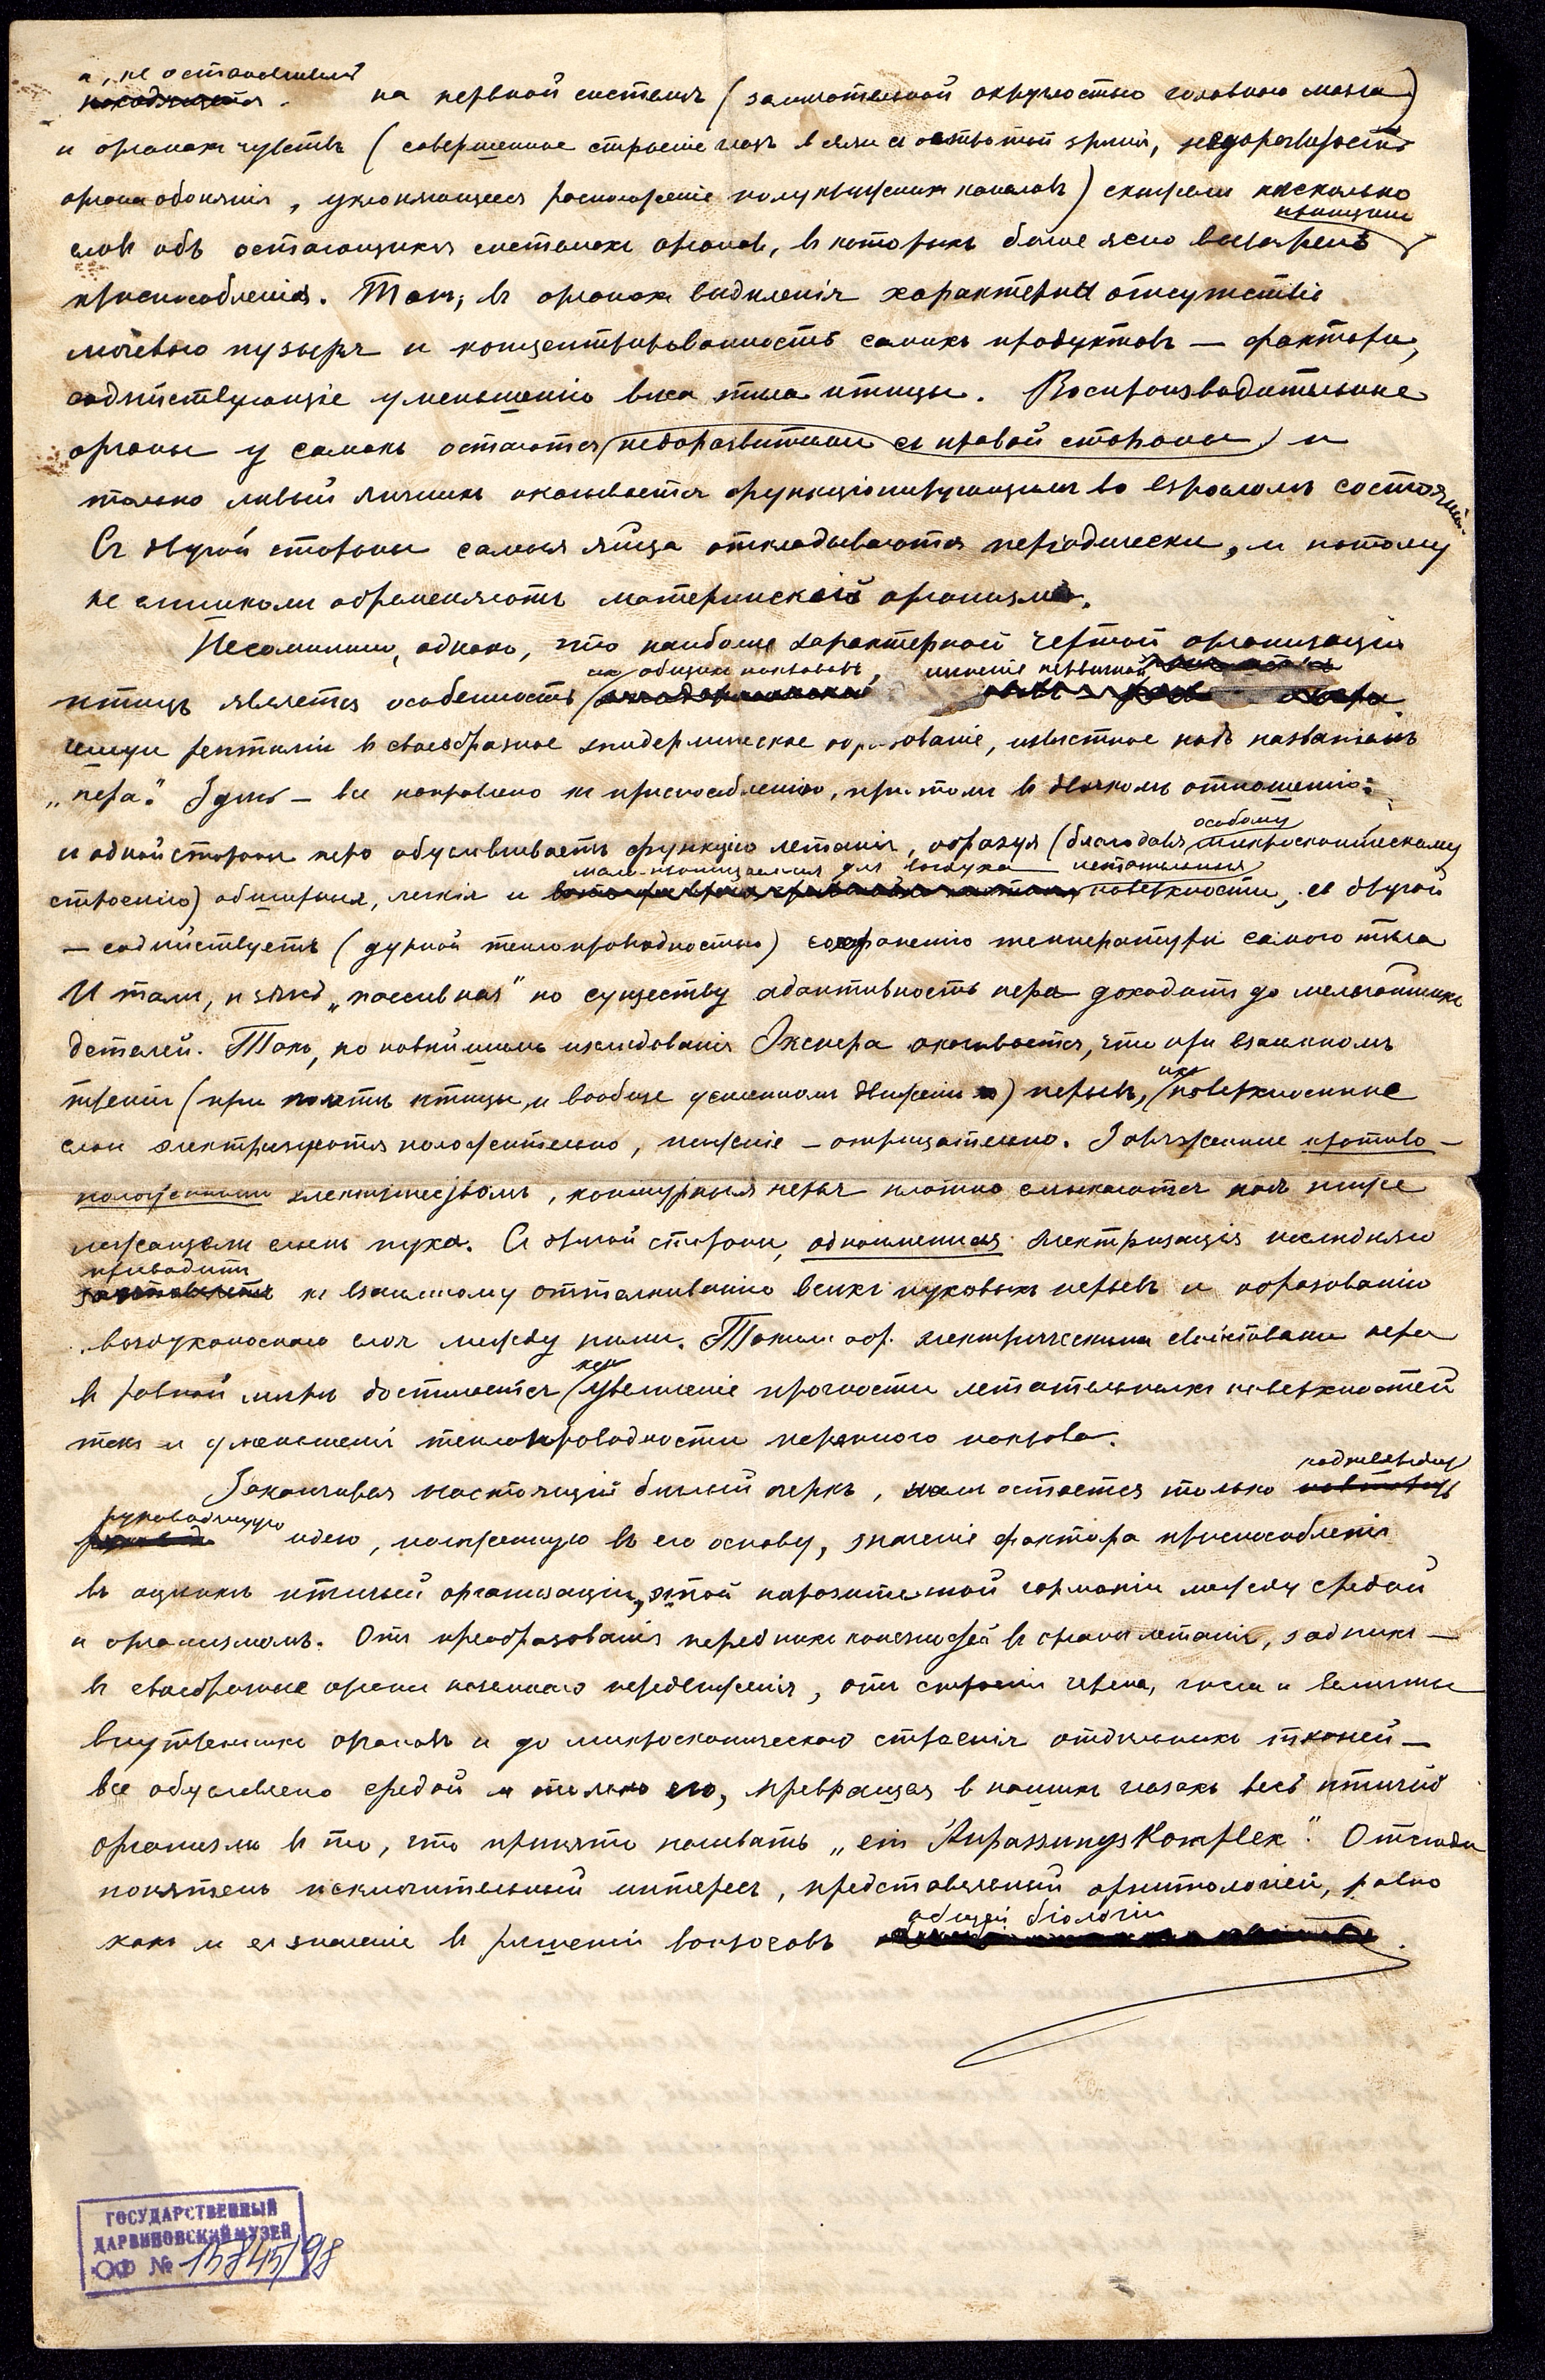 а, не останавливаясь
на нервной системѣ (замѣчательной округлостью головного мозга)
и органахъ чувствъ (совершенное строеніе глазъ въ связи съ остротой зрѣнія, недоразвитость
органа обонянія, уклоняющееся расположеніе полукружныхъ каналовъ) скажемъ нѣсколько
словъ объ остающихся системахъ органовъ, въ которыхъ болѣе ясно выражены
принципы
приспособленія. Такъ, въ органахъ выдѣленія характерны отсутствіе
мочевого пузыря и концентрированность самихъ продуктовъ — факторы,
содѣйствующіе уменьшенію вѣса тѣла птицы. Воспроизводительные
органы у самокъ остаются недоразвитыми съ правой стороны и
только лѣвый яичникъ оказывается функціонирующимъ во взросломъ состояніи.
Съ другой стороны самыя яйца откладываются періодически, и потому
не слишкомъ обременяютъ материнскій организмъ.
Несомнѣнно, однако, что наиболѣе характерной чертой организаціи
их общихъ покрововъ, именно первичной
птицъ является особенность
чешуи рептилій въ своеобразное эпидермическое образованіе, извѣстное подъ названіемъ
„пера“. Здѣсь — все направлено къ приспособленію, притомъ въ двоякомъ отношеніи:
особому
съ одной стороны перо обусловливаетъ функцію летанія, образуя (благодаря микроскопическому
мало-проницаемыя для воздуха летательныя
строенію) обширныя, легкія и поверхности, съ другой
— содѣйствуетъ (дурной теплопроводностью) сохраненію температуры самого тѣла
И тамъ, и здѣсь „пассивная“ по существу адаптивность пера доходитъ до мельчайшихъ
деталей. Такъ, по новѣйшимъ изслѣдованіямъ Экснера оказывается, что при взаимномъ
треніи (при полетѣ птицы и вообще усиленномъ движеніи) перьевъ, ихъ поверхностные
слои электризуются положительно, нижніе — отрицательно. Заряженные противо-
положнымъ электричествомъ, контурныя перья плотно смыкаются надъ ниже
лежащимъ слоемъ пуха. Съ другой стороны, одноименная электризація послѣдняго
приводитъ
къ взаимному отталкиванію всѣхъ пуховыхъ перьевъ и образованію
воздухоноснаго слоя между ними. Такимъ обр. электрическими свойствами пера
въ равной мѣрѣ достигается какъ увеличеніе прочности летательныхъ поверхностей
такъ и уменьшеніе теплопроводности перяного покрова.
Заканчивая настоящій бѣглый очеркъ, намъ остается только подтвердить
руководящую
идею, положенную въ его основу, значеніе фактора приспособленія
въ оцѣнкѣ птичьей организаціи, этой поразительной гармоніи между средой
и организмомъ. Отъ преобразованія переднихъ конечностей въ органы летанія, заднихъ —
въ своеобразные органы наземнаго передвиженія, отъ строенія черепа, числа и величины
внутреннихъ органовъ и до микроскопическаго строенія отдѣльныхъ тканей —
все обусловлено средой и только ею, превращая въ нашихъ глазахъ весь птичій
организмъ въ то, что принято называть „ein Anpassungskomplex“. Отсюда
понятенъ исключительный интересъ, представляемый орнитологіей, равно
общей біологіи
какъ и ея значеніе въ рѣшеніи вопросовъ
ГОСУДАРСТВЕННЫЙ
ДАРВИНОВСКИЙ МУЗЕЙ
ОФ № 15845/98